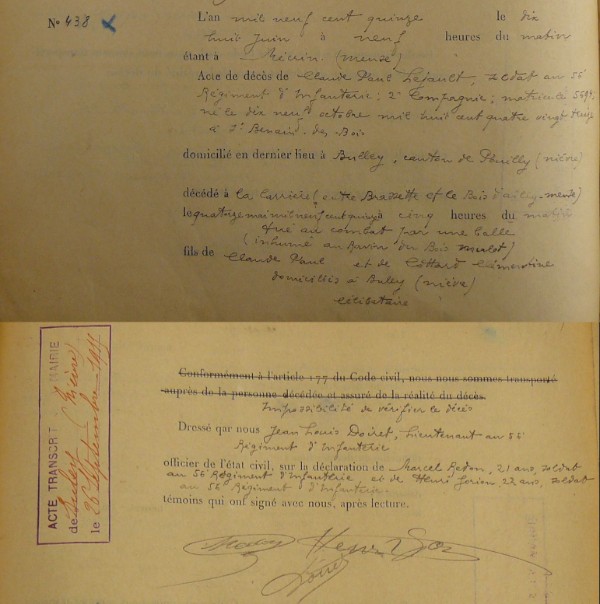 N° 438
L'an mil neuf cent quinze le dix
huit juin à neuf heures du matin
étant à Mécrin (meuse)
Acte de décès de Claude Paul soldat au 56e
Régiment d'Infanterie; 2e Compagnie; matricule
né le dix neuf octobre mil huit cent quatre vingt
à St Benin des Bois
domicilié en dernier lieu à Bulcy, canton de Pouilly (nièvre)
décédé à la Carrière (entre Brassette et le Bois d'ailly-meuse)
le quatorze mai mil neuf cent quinze à cinq heures du matin
tué au combat par une balle
(inhumé au Ravin du Bois mulot)
fils de Claude Paul et de Clémentine
domiciliés à Bulcy (nièvre)
célibataire
ACTE TRANSCRIT MAIRIE
de Bulcy (Nièvre)
le 26 septembre 1917
Conformément à l'article 77 du Code civil, nous nous sommes transporté
auprès de la personne décédée et assuré de la réalité du décès.
Impossibilité de vérifier le décès
Dressé par nous Jean Louis Doiret, lieutenant au 56e
Régiment d'Infanterie
officier de l'état civil, sur la déclaration de Marcel Redon, 21 ans, soldat
au 56e Régiment d'Infanterie, et de Henri 22 ans, soldat
au 56e Régiment d'Infanterie.
témoins qui ont signé avec nous, après lecture.